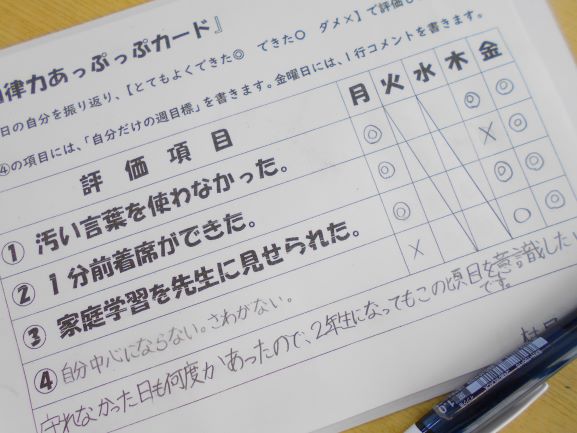 律力あっぷっぷカード』
日の自分を振り返り、【とてもよくできた◎ できた○ ダメ×】で評価し
④の項目には、「自分だけの週目標」を書きます。金曜日には、1行コメントを書きます。
評価項目 月 火 水 木 金
① 汚い言葉を使わなかった。 ◎ ◎ ◎
② 1分前着席ができた。 ◎ × ◎
③ 家庭学習を先生に見せられた。 ◎ ◎ ◎
④ 自分中心にならない。さわがない。 × ○ ◎
守れなかった日も何度かあったので、2年生になってもこの項目を意識したい
です。
1.0